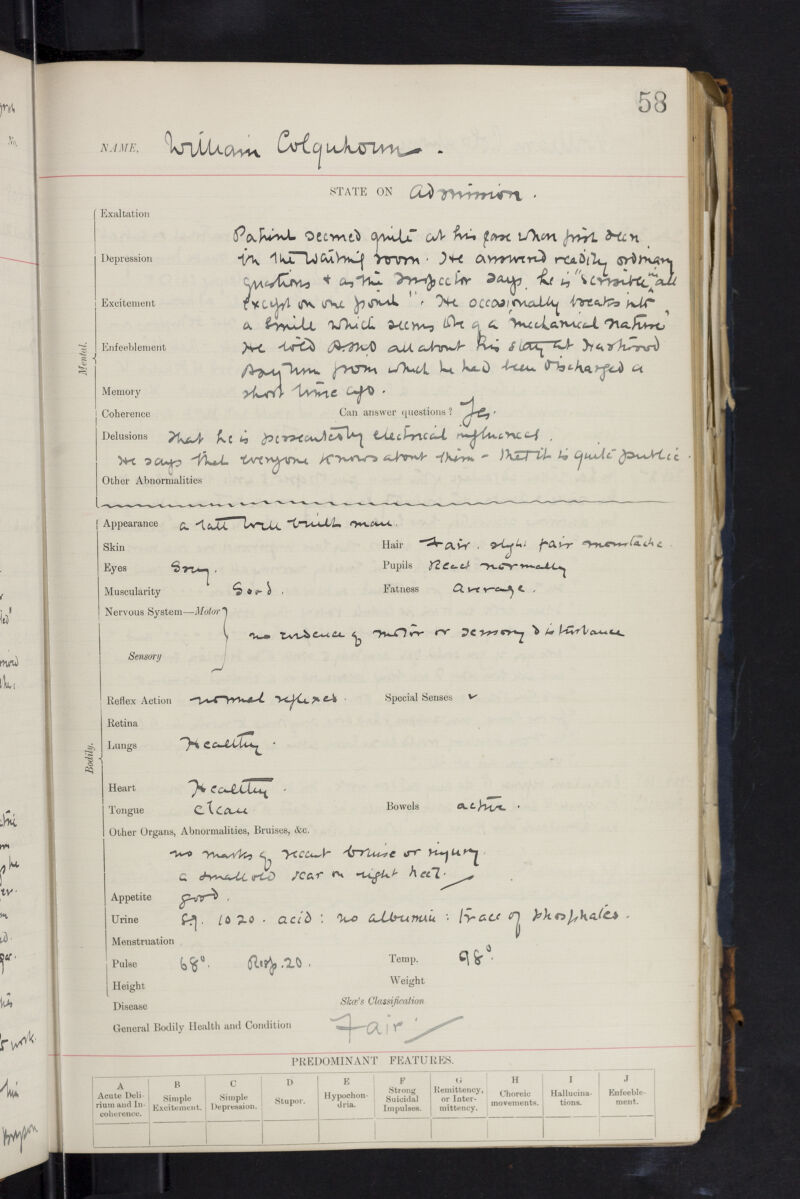 58
NAME, William Colquhoun.
STATE ON Admission.
Exaltation
Patient seemed quite at his ease when first seen
Depression in the waiting room. He answered readily ordinary
questions & as the Inspector says he is "sensible" all
Excitement except on one point". He occasionally breaks into
a smile which seems like of a "mechanical nature"
Enfeeblement He told A.M.O all about his stay at Hartwood
Asylum from which he had been discharged a
Memory short time ago.
Coherence Can answer questions? Yes.
Delusions That he is persecuted by electrical influences.
He says that everyone knows about them - that it is quite public.
Other Abnormalities
Mental.
Appearance a tall well built man.
Skin Hair Fair. slight fair moustache.
Eyes Grey. Pupils React normally
Muscularity Good. Fatness average.
Nervous System—Motor
no evidence of motor or sensory disturbance
Sensory
Reflex Action normal reflexes. Special Senses ✓
Retina
Lungs Healthy.
Bodily.
Heart Healthy.
Tongue clean Bowels active.
Other Organs, Abnormalities, Bruises, &c.
no marks of recent bruise or injury.
a small old scar on right heel.
Appetite good.
Urine S.g. 1020. acid: no albumin: trace of phosphates.
Menstruation
Pulse 68°. Resp. 20. Temp. 98°.
Height Weight
Disease Skæ's Classification
General Bodily Health and Condition Fair.
PREDOMINANT FEATURES.
A Acute Delirium and Incoherence. B Simple Excitement. C Simple Depression. D Stupor. E Hypochondria. F Strong Suicidal Impulses. G Remittency, or Intermittency. H Choreic movements. I Hallucinations. J Enfeeblement.